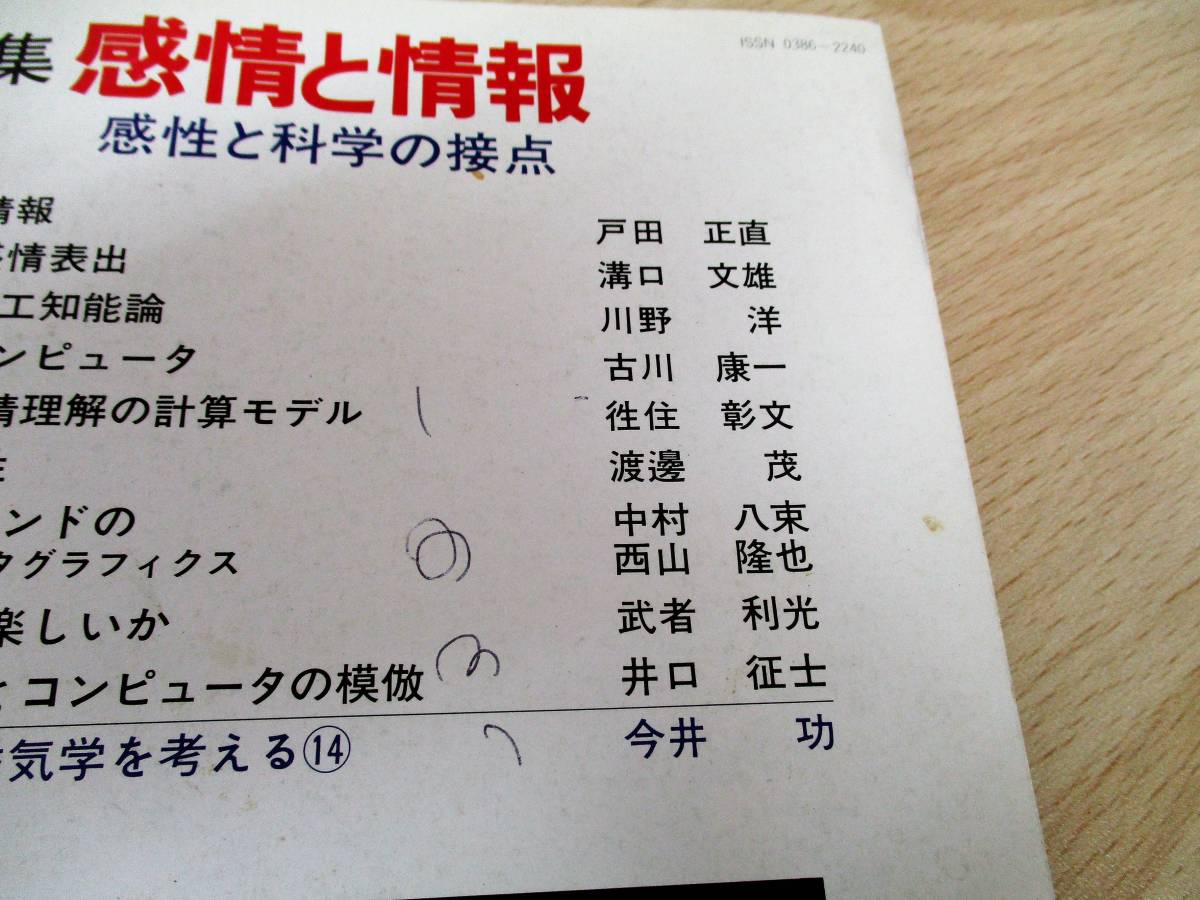 ISSN 0386-2240
集 感情と情報
感性と科学の接点
情報 戸田 正直
感情表出 溝口 文雄
工知能論 川野 洋
ンピュータ 古川 康一
情理解の計算モデル 徃住 彰文
性 渡邊 茂
ンドの 中村 八束
タグラフィクス 西山 隆也
楽しいか 武者 利光
とコンピュータの模倣 井口 征士
気学を考える⑭ 今井 功